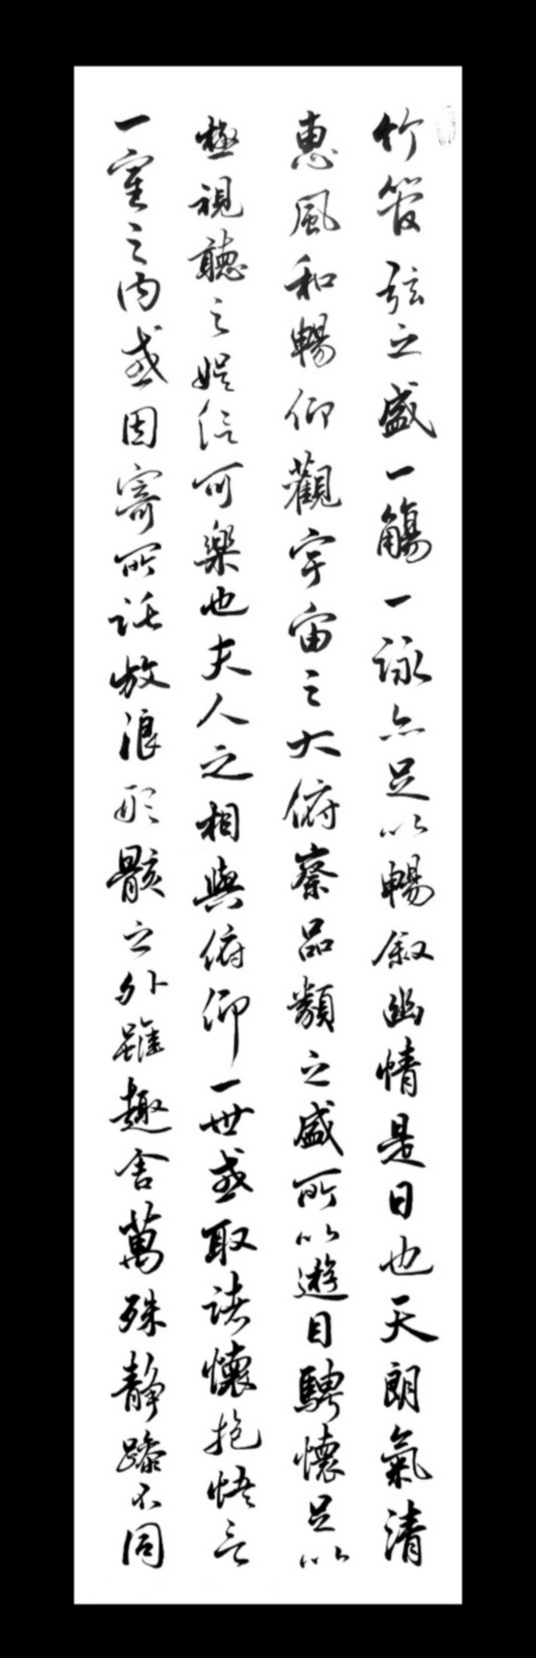 竹管弦之盛一觴一詠亦足以暢叙幽情是日也天朗氣清
惠風和暢仰觀宇宙之大俯察品類之盛所以遊目騁懷足以
極視聽之娛信可樂也夫人之相與俯仰一世或取諸懷抱悟言
一室之内或因寄所託放浪形骸之外雖趣舍萬殊静躁不同